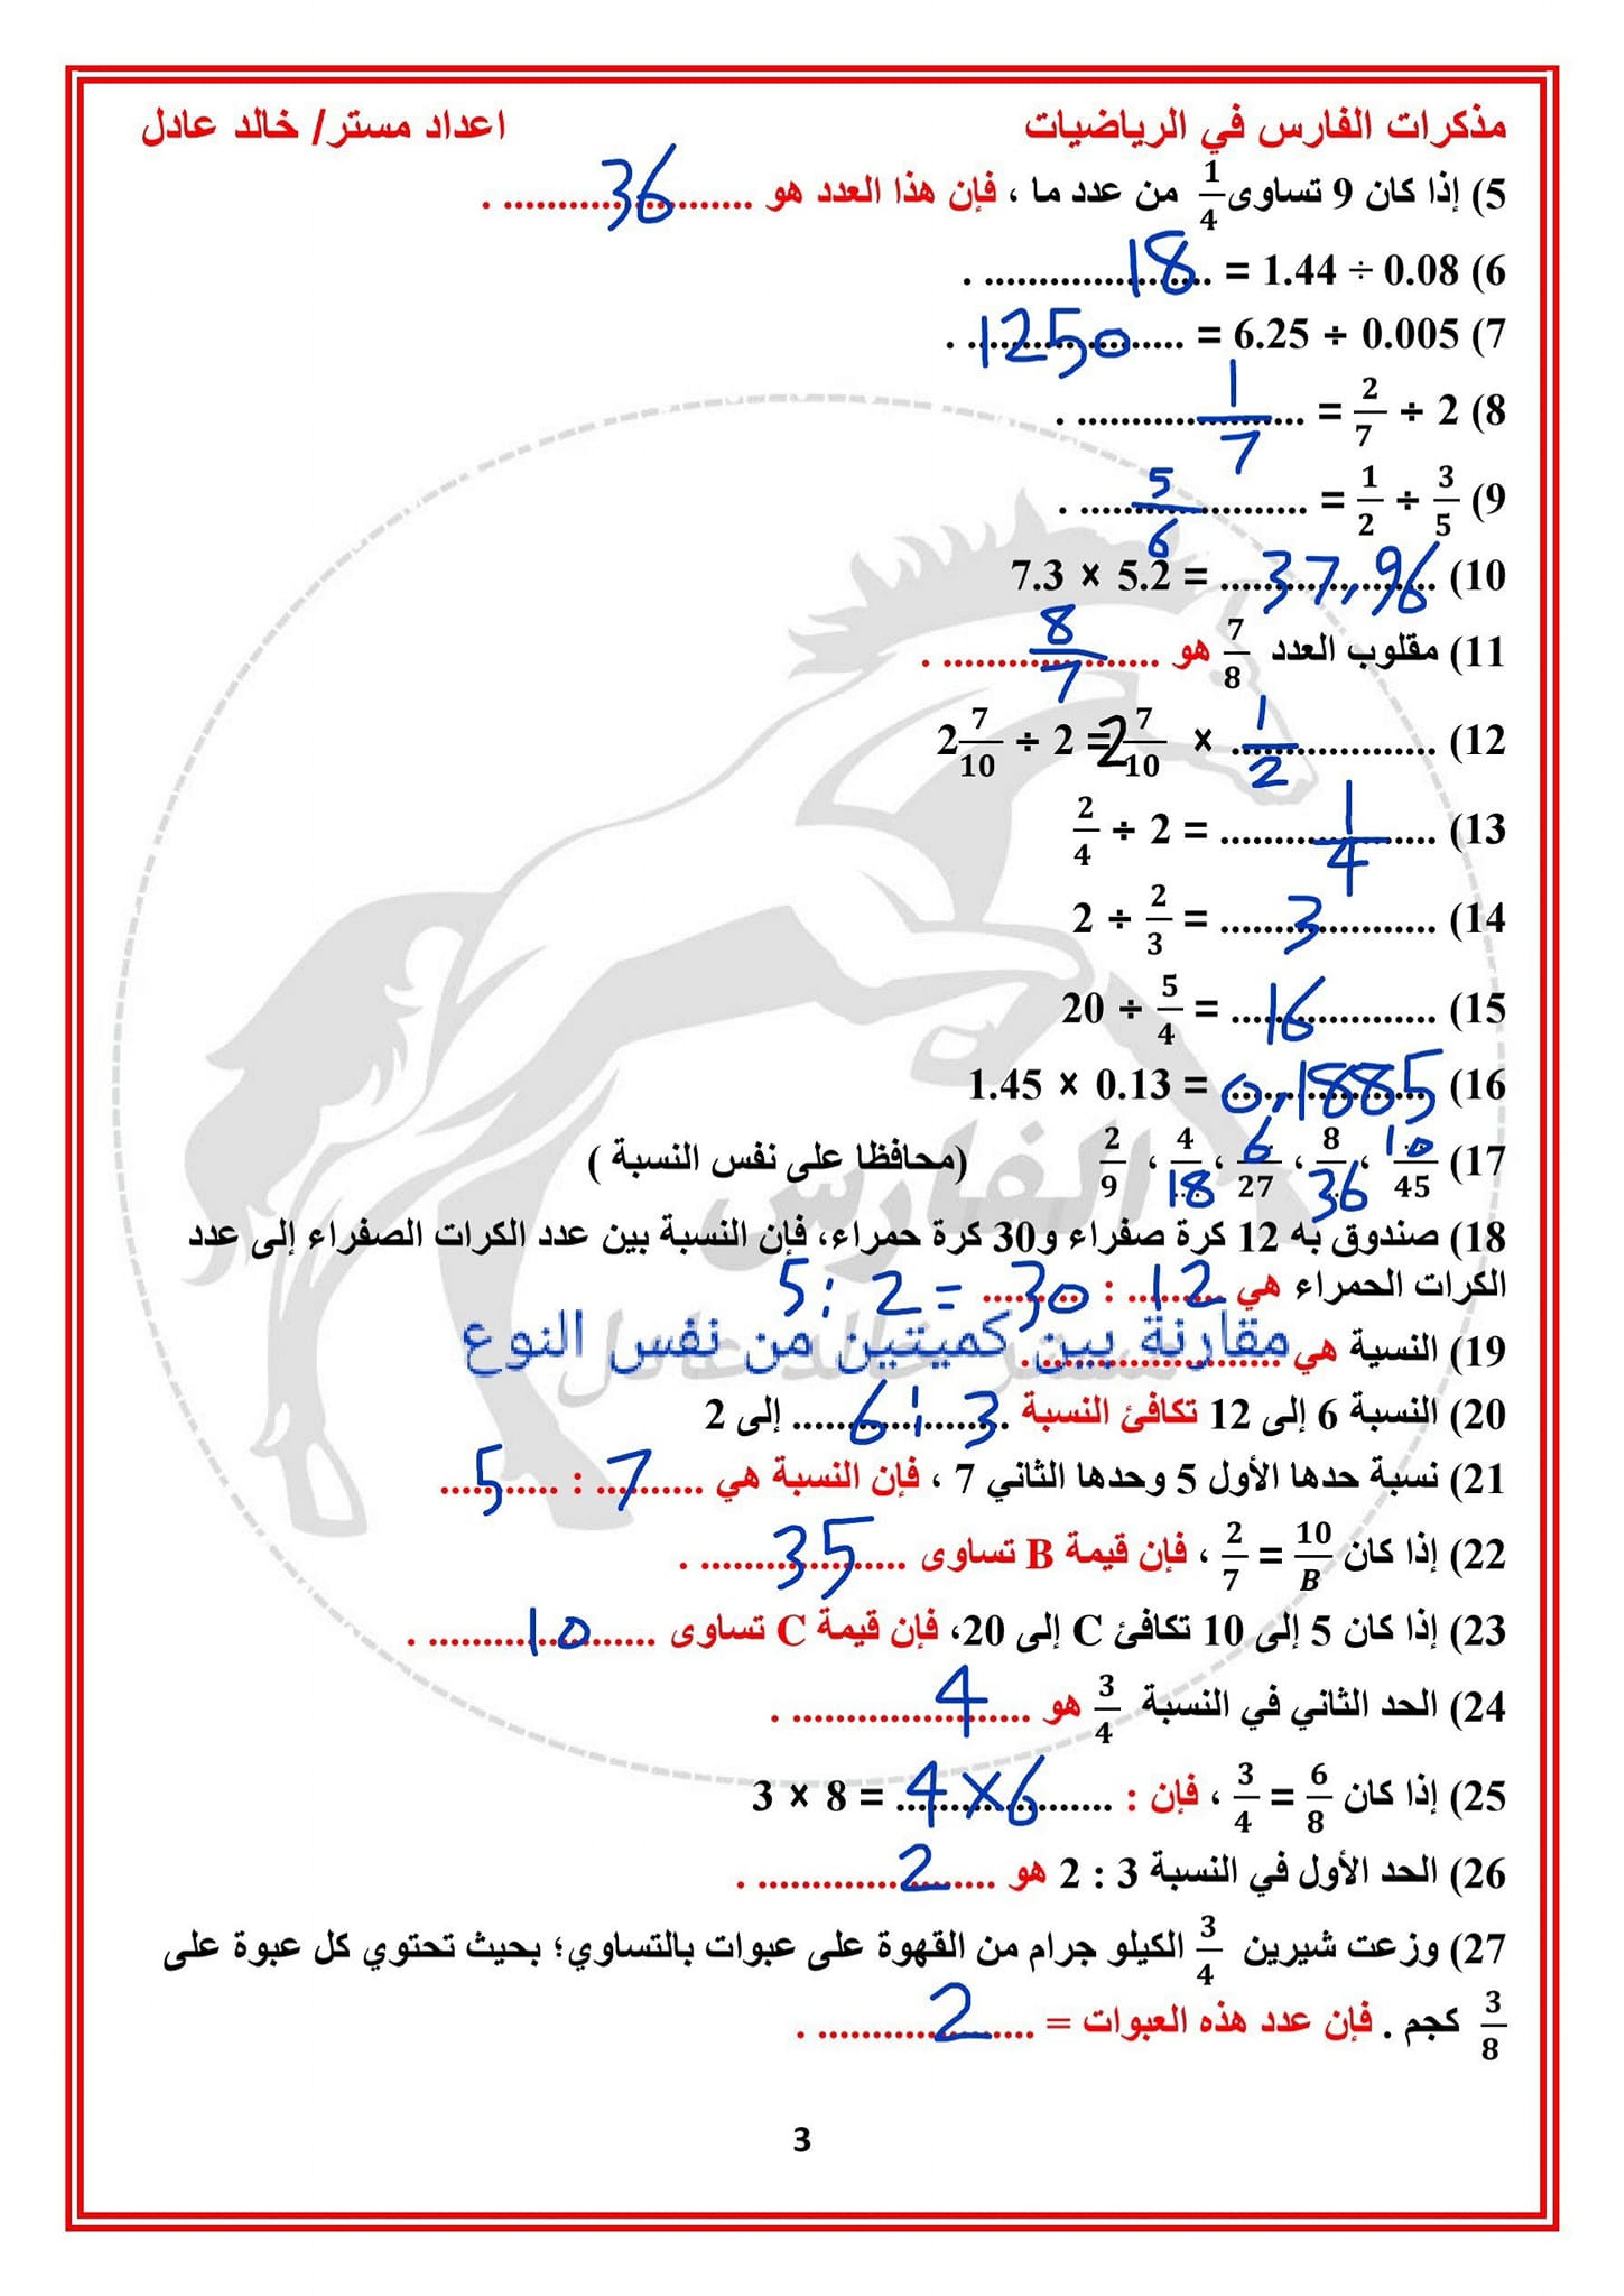 مذكرات الفارس في الرياضيات اعداد مستر/ خالد عادل
5) إذا كان 9 تساوى 1/4 من عدد ما ، فإن هذا العدد هو 36 .
6) 1.44 ÷ 0.08 = 18 .
7) 6.25 ÷ 0.005 = 1250 .
8) 2/7 ÷ 2 = 1/7 .
9) 1/2 ÷ 3/5 = 5/6 .
10) 7.3 × 5.2 = 37,96
11) مقلوب العدد 7/8 هو 8/7 .
12) 2 7/10 ÷ 2 = 2 7/10 × 1/2
13) 2/4 ÷ 2 = 1/4
14) 2 ÷ 2/3 = 3
15) 20 ÷ 5/4 = 16
16) 1.45 × 0.13 = 0,1885
17) 2/9 ، 4/18 ، 6/27 ، 8/36 ، 10/45 (محافظا على نفس النسبة )
18) صندوق به 12 كرة صفراء و30 كرة حمراء، فإن النسبة بين عدد الكرات الصفراء إلى عدد
الكرات الحمراء هي 12 : 30 = 2 : 5
19) النسبة هي مقارنة بين كميتين من نفس النوع
الفارس
مستر خالد عادل
20) النسبة 6 إلى 12 تكافئ النسبة 3 : 6 إلى 2
21) نسبة حدها الأول 5 وحدها الثاني 7 ، فإن النسبة هي 7 : 5
22) إذا كان 10/B = 2/7 ، فإن قيمة B تساوى 35 .
23) إذا كان 5 إلى 10 تكافئ C إلى 20، فإن قيمة C تساوى 10 .
24) الحد الثاني في النسبة 3/4 هو 4 .
25) إذا كان 6/8 = 3/4 ، فإن : 3 × 8 = 4×6
26) الحد الأول في النسبة 3 : 2 هو 2 .
27) وزعت شيرين 3/4 الكيلو جرام من القهوة على عبوات بالتساوي؛ بحيث تحتوي كل عبوة على
3/8 كجم . فإن عدد هذه العبوات = 2 .
3